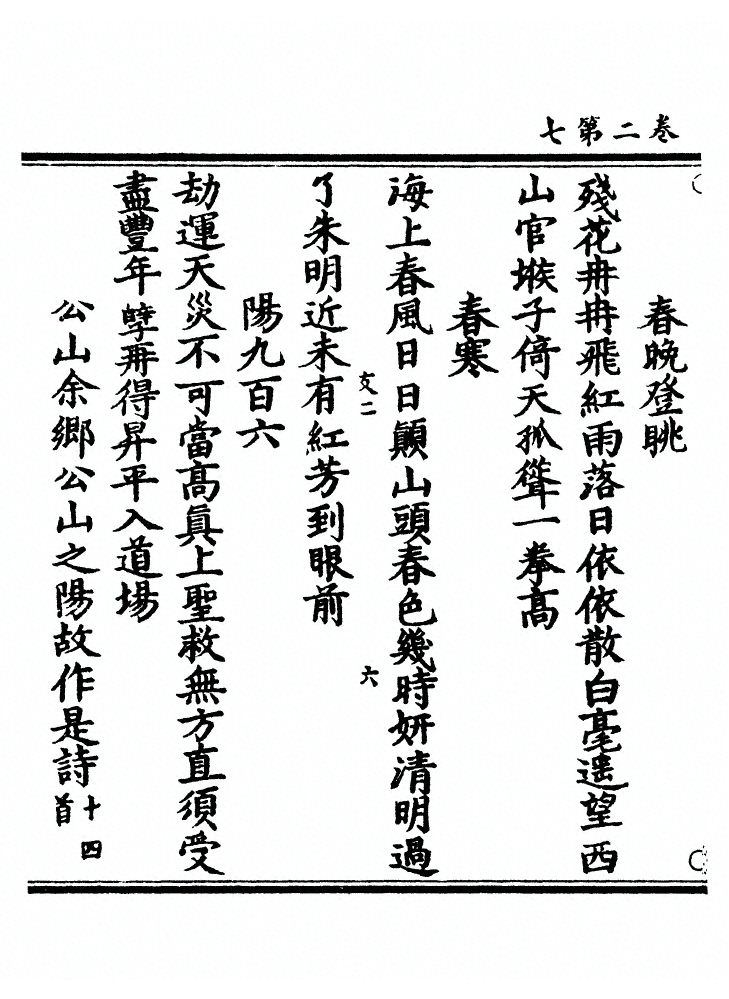 卷二第七
春晚登眺
殘花冉冉飛紅雨落日依依散白毫遥望西
山官堠子倚天孤聳一拳高
春寒
海上春風日日顛山頭春色幾時妍清明過
友二
六
了朱明近未有紅芳到眼前
陽九百六
劫運天災不可當高眞上聖救無方直須受
盡豐年孽再得昇平入道場
公山余鄉公山之陽故作是詩十四首